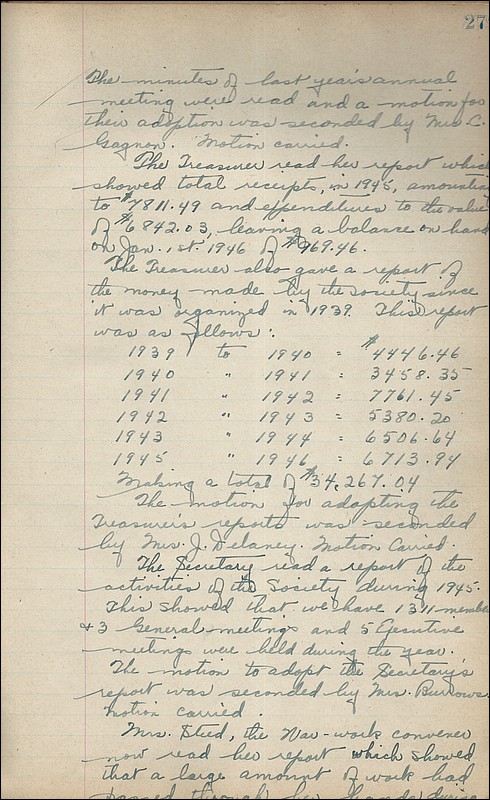 27
The minutes of last year's annual
meeting were read and a motion for
their adoption was seconded by Mrs L.
Gagnon. Motion carried.
The Treasurer read her report which
showed total receipts, in 1945, amounting
to $7811.49 and expenditures to the value
of $6842.03, leaving a balance on hand
on Jan. 1st. 1946 of $969.46.
The Treasurer also gave a report of
the money made by the Society since
it was organized in 1939. This report
was as follows:
1939 to 1940 = $4446.46
1940 " 1941 = 3458.35
1941 " 1942 = 7761.45
1942 " 1943 = 5380.20
1943 " 1944 = 6506.64
1945 " 1946 = 6713.94
Making a total of $34,267.04
The motion for adopting the
Treasurer's reports was seconded
by Mrs. J. Delaney. Motion Carried.
The Secretary read a report of the
activities of the Society during 1945.
This showed that we have 1311 members
& 3 General meetings and 5 Executive
meetings were held during the year.
The motion to adopt the Secretary's
report was seconded by Mrs. Burrows.
Motion carried.
Mrs. Steed, the War-work convener
now read her report which showed
that a large amount of work had
passed through her hands during